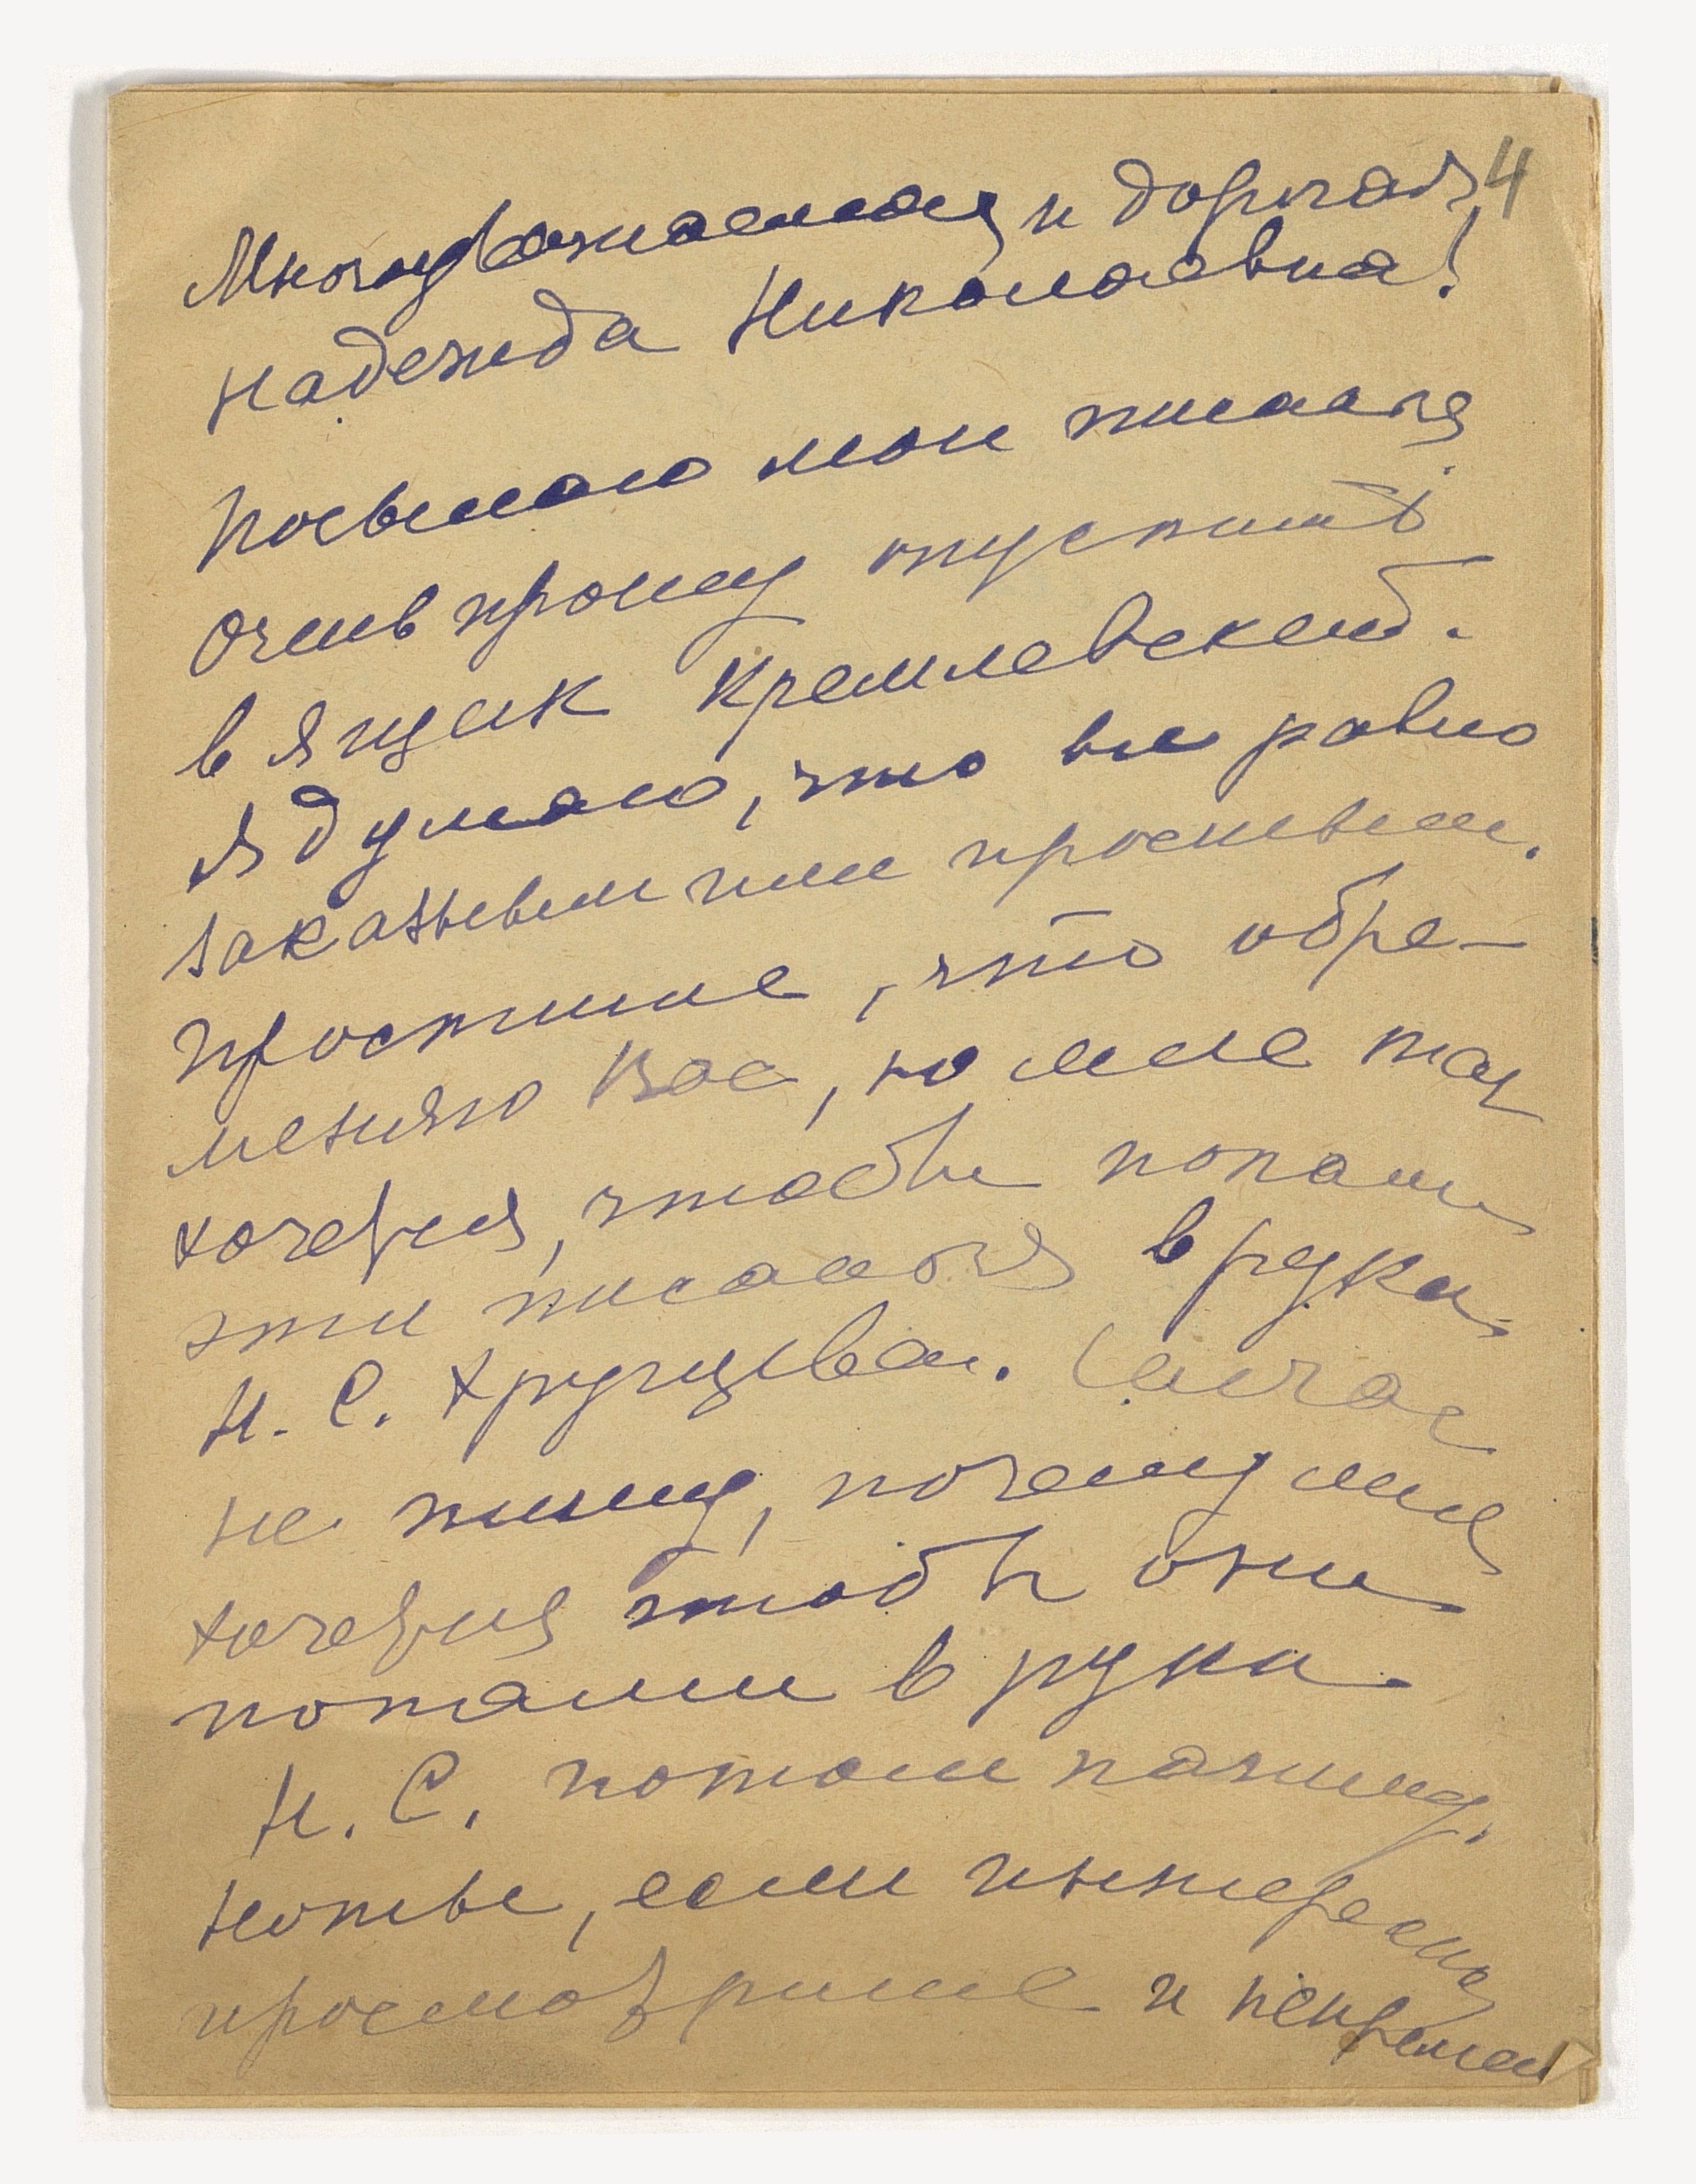 Многоуважаемая и дорогая 4
Надежда Николаевна!
Посылаю мои писания
очень прошу опустить
в ящик Кремлевский.
Я думаю, что все равно
заказным или простым.
Простите, что обре-
меняю Вас, но мне так
хочется, чтобы попали
эти писания в руки
Н. С. Хрущева. Сейчас
не пишу, почему мне
хочется чтобы они
попали в руки
Н. С. потом напишу.
Копты, если интересно
просмотрите и непременно